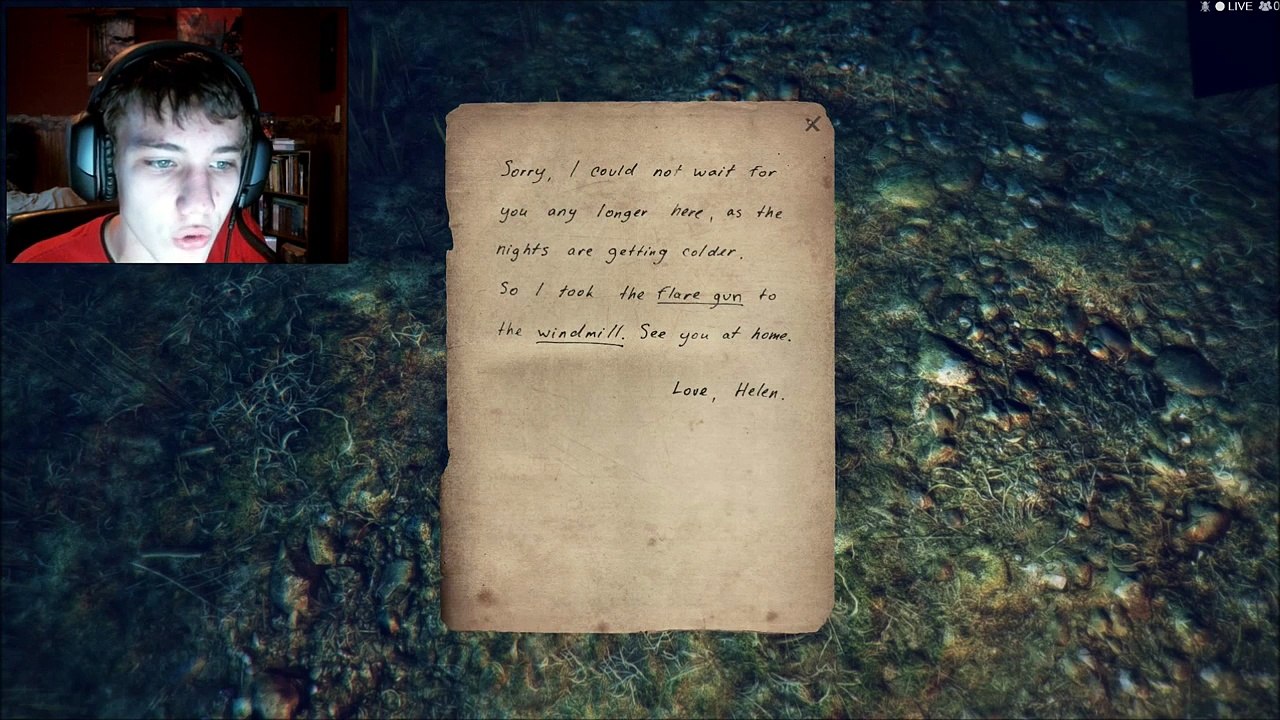 LIVE 0
Sorry, I could not wait for
you any longer here, as the
nights are getting colder.
So I took the flare gun to
the windmill. See you at home.
Love, Helen.